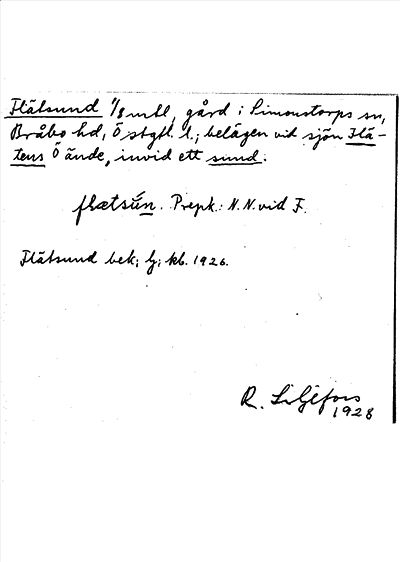 Flätsund 1/8 mtl, gård i Simonstorps sn,
Bråbo hd, Östgtl. l.; belägen vid sjön Flä-
tens Ö ände, invid ett sund.
flætsún. Prepk.: N.N. vid F.
Flätsund bek; lj; kb. 1926.
R. Liljefors
1928